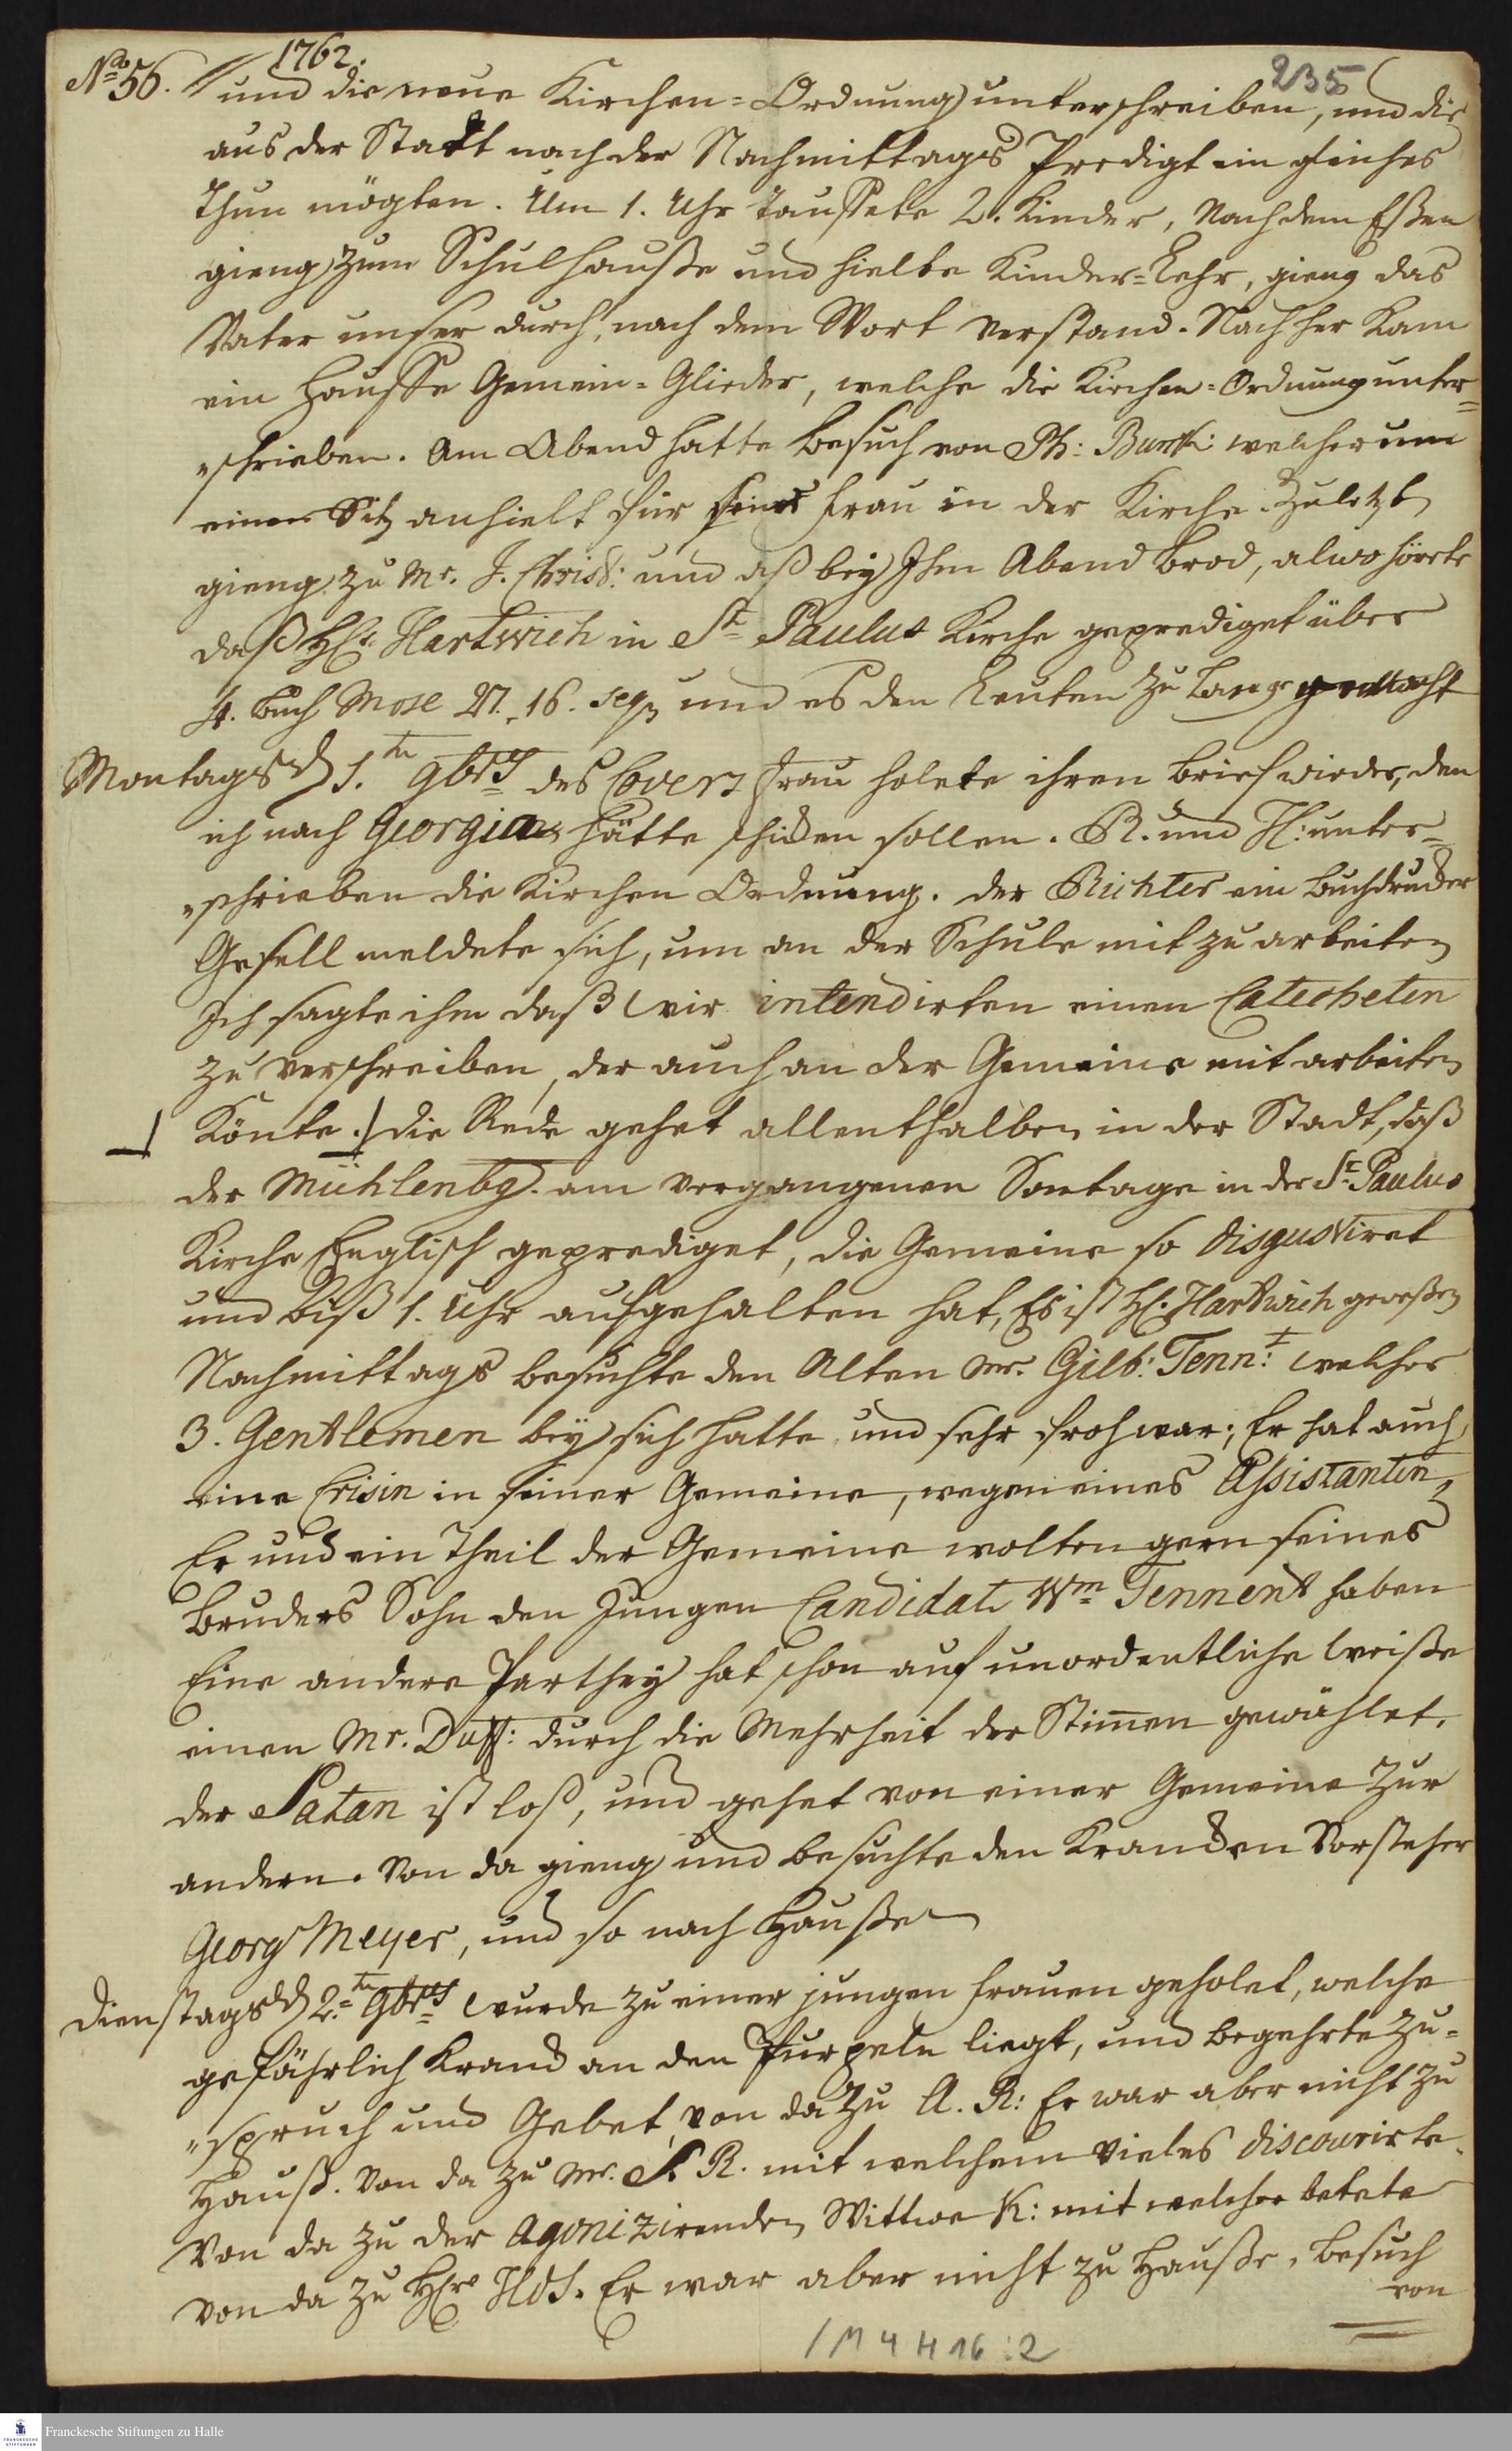 No. 56. 1762. 235
und die neue Kirchen-Ordnung unterschreiben, und die
aus der Stadt nach der Nachmittags Predigt ein gleiches
thun mögten. Um 1. Uhr tauffete 2. Kinder, Nach dem Eßen
gieng zum Schulhauße und hielte Kinder-Lehr, gieng das
Vater unser durch, nach dem Wort Verstand. Nachher kam
ein Hauffe Gemein-Glieder, welche die Kirchen-Ordnung unter=
„schrieben. Am Abend hatte Besuch von Ph: welcher um
einen Sitz anhielt für seine Frau in der Kirche. Zuletzt
gieng zu Mr. J. Christ: und aß bey Ihm Abend Brod, alwo hörete
daß H. Hartwich in St. Paulus Kirche geprediget über
4. Buch Mose 27, 16. seq und es den Leuten zu lang gemacht
Montags d 1.ten 9brs des Coverz Frau holete ihren Brief wieder, den
ich nach Georgien hätte schicken sollen. R. und H: unter=
„schrieben die Kirchen Ordnung. der Richter ein Buchdrucker
Gesell meldete sich, um an der Schule mit zu arbeiten
Ich sagte ihm daß wir intendirten einen Catecheten
zu verschreiben, der auch an der Gemeine mit arbeiten
könte. die Rede gehet allenthalben in der Stadt, daß
der Mühlenbg. am vergangenen Sontage in der St. Paulus
Kirche Englisch geprediget, die Gemeine so disgustiret
und biß 1. Uhr aufgehalten hat, Es ist H. Hartwich geweßen
Nachmittags besuchte den Alten Mr. Gilb: Tenn:t welcher
3. Gentlemen bey sich hatte und sehr froh war; Er hat auch
eine Crisin in seiner Gemeine, wegen eines Assistanten,
Er und ein Theil der Gemeine wolten gern seines
Bruders Sohn den Jungen Candidat Wm Tennent haben
Eine andere Parthey hat schon auf unordentliche Weiße
einen Mr. Duff: durch die Mehrheit der Stimen gewählet.
der Satan ist loß, und gehet von einer Gemeine zur
andern. Von da gieng und besuchte den Krancken Vorsteher
Georg Meyer, und so nach Hauße
Dienstags d 2.ten 9brs wurde zu einer jungen Frauen geholet, welche
gefährlich Kranck an den Purpeln liegt, und begehrte Zu=
„spruch und Gebet, von da zu A. R: Er war aber nicht zu
Hauß. Von da zu Mr. S. R. mit welchem vieles discourirte.
Von da zu der Agonizirenden Wittwe K: mit welcher betete
von da zu H. Er war aber nicht zu Hauße. Besuch
von
1 M 4 H 16 : 2
Franckesche Stiftungen zu Halle